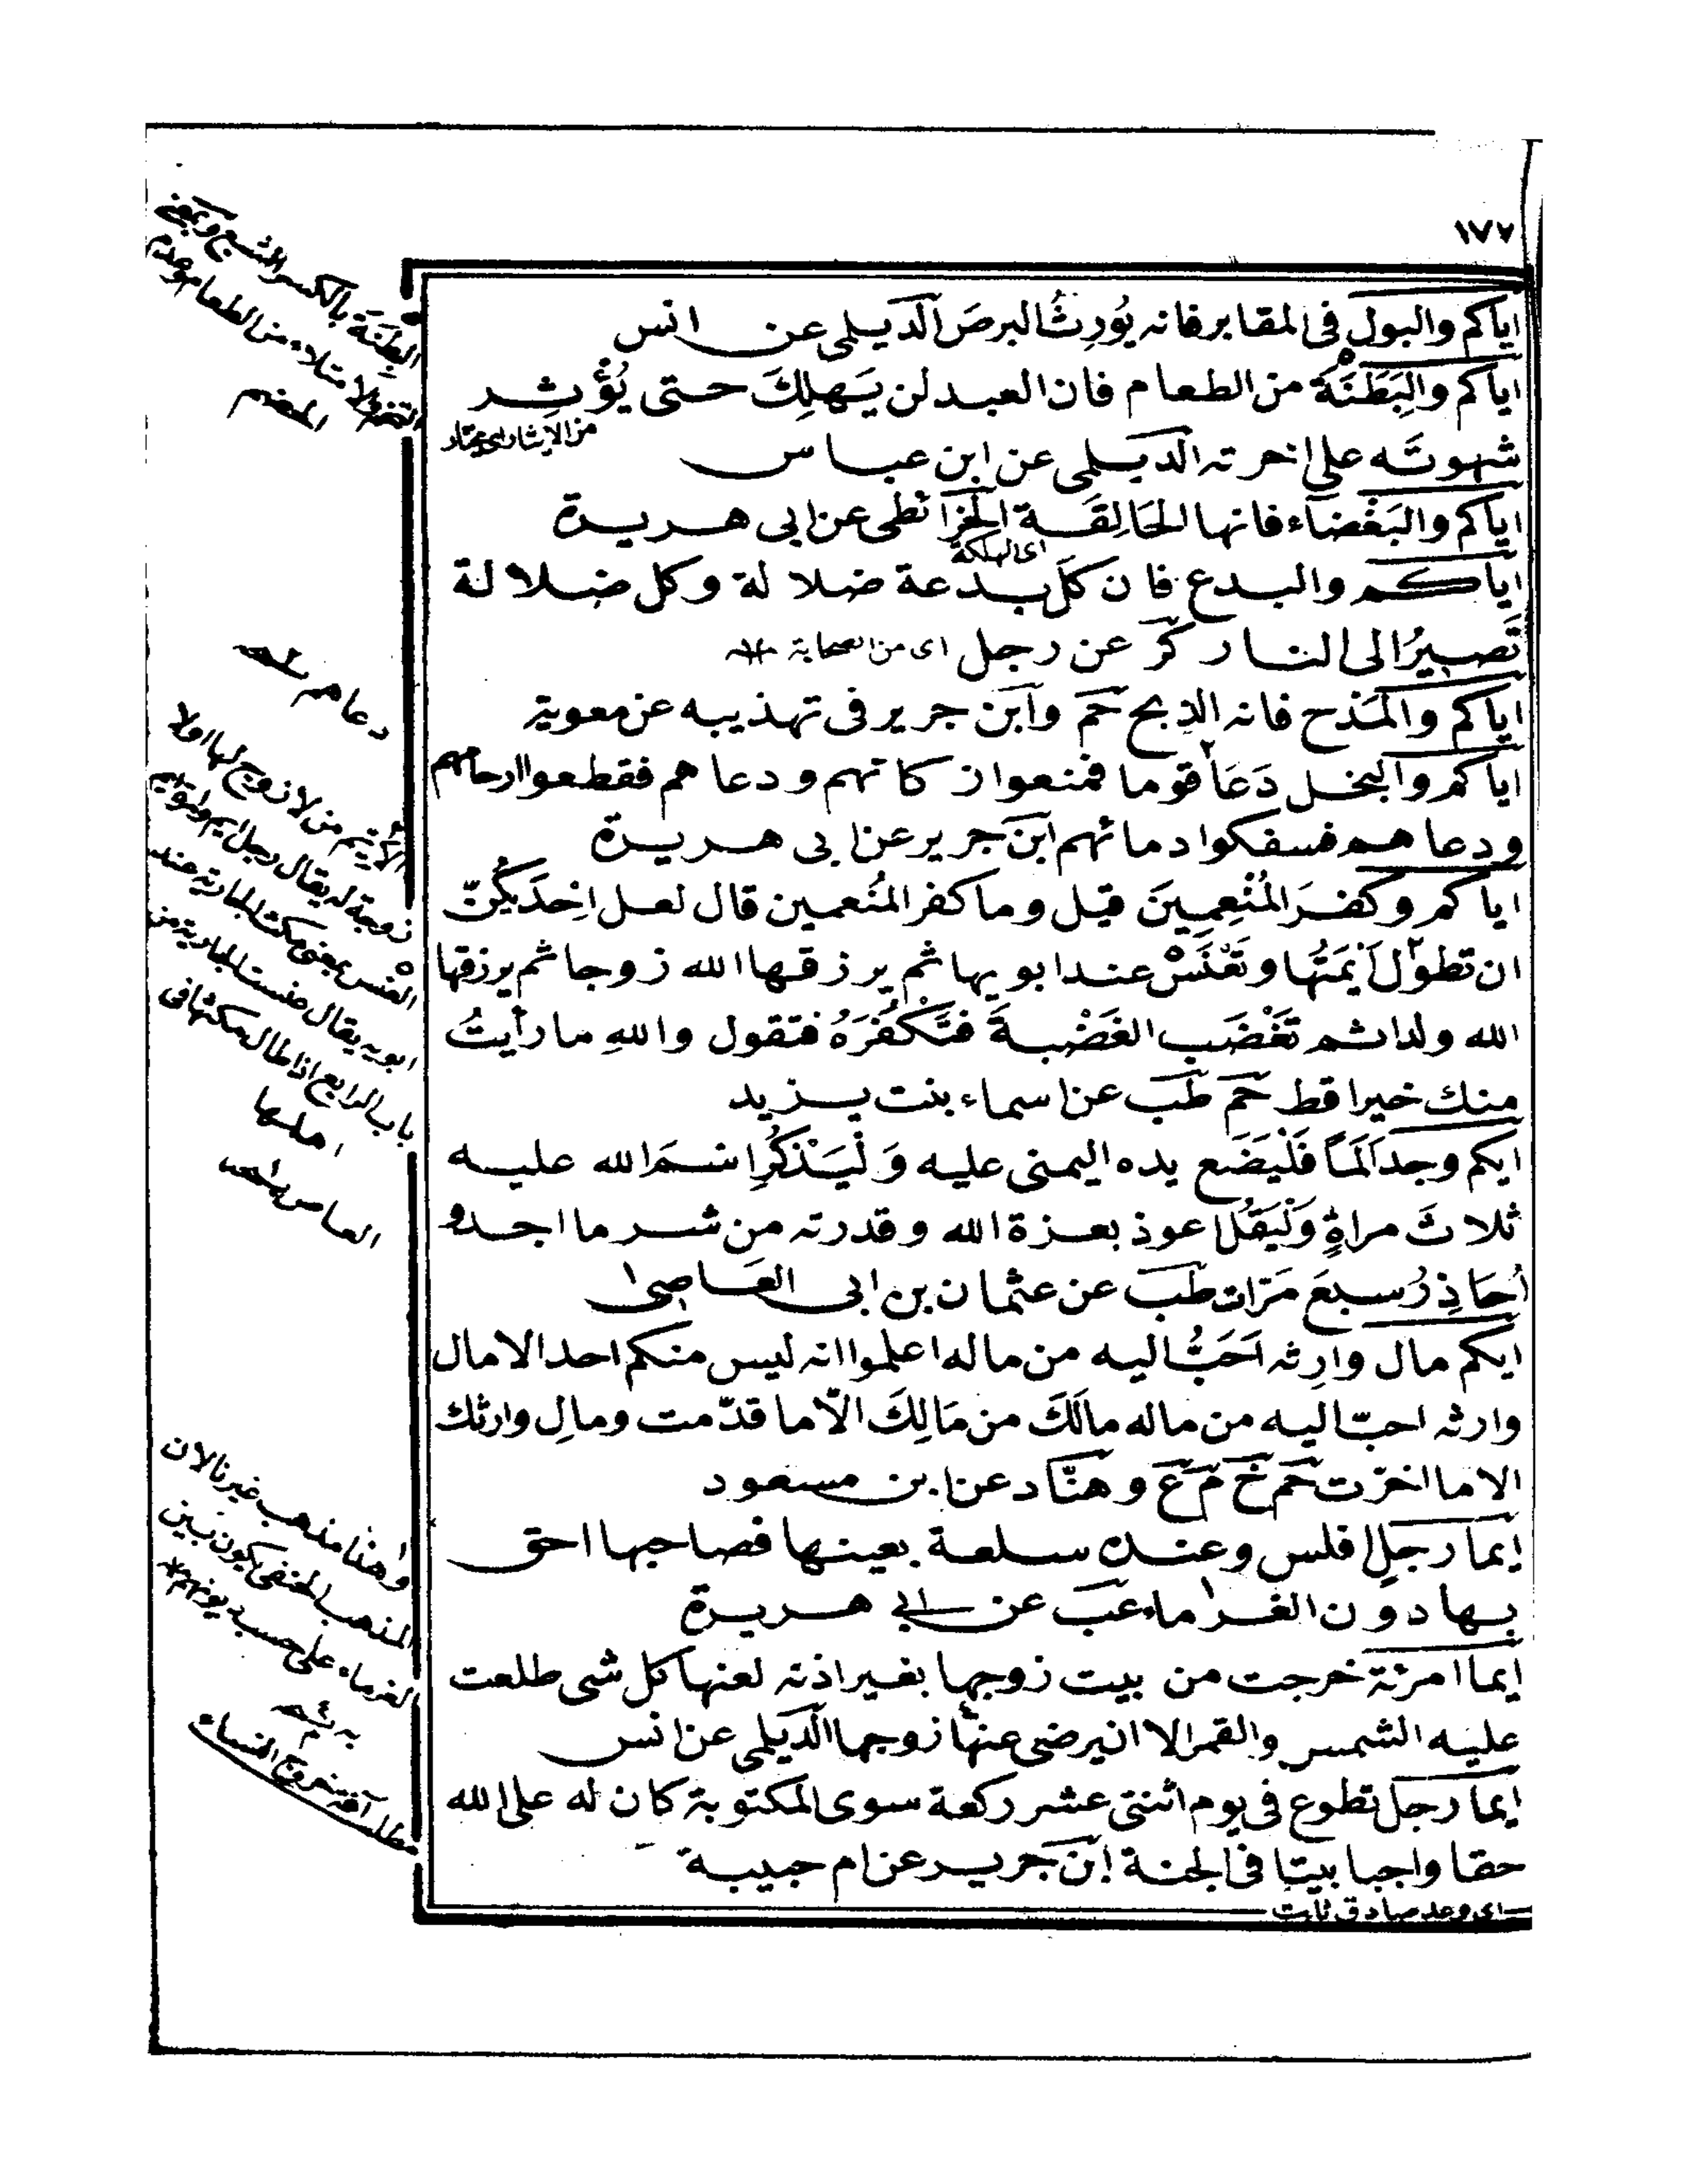 ١٧٧
اياكم والبول فى المقابر فانه يُورِثُ البرصَ الديلمى عن انس
اياكم والبِطْنَة من الطعام فان العبد لن يَهلِكَ حتى يُؤْثِر
من الإيثار اى يختار
شهوتَه على اخرته الديلمى عن ابن عباس
اياكم والبَغْضَآء فانها الحَالِقَة الخرآئطى عن ابى هريرة
اى المهلكة
اياكم والبدع فان كلّ بدعة ضلالة وكل ضلالة
تَصيرُ الى النار كر عن رجل اى من الصحابة
اياكم والمَدْح فانه الذبح حم وابن جرير فى تهذيبه عن معوية
اياكم والبخل دَعَا قوما فمنعوا زكاتهم ودعاهم فقطعوا ارحامهم
ودعاهم فسفكوا دمائهم ابن جرير عن ابى هريرة
اياكم وكفرَ المُنْعِمِينَ قيل وما كفر المُنعمين قال لعل اِحْدَيكُنّ
ان تطول اَيْمَتُهَا وتَعْنَسْ عند ابويها ثم يرزقها الله زوجا ثم يرزقها
الله ولدا ثم تَغْضَب الغَضْبةَ فتَكْفُرَهُ فتقول واللهِ ما رأيتُ
منك خيرا قط حم طب عن اسماء بنت يزيد
ايكم وجد اَلَمًا فَلْيَضَع يده اليمنى عليه وَلْيَذْكُرِ اسْمَ الله عليه
ثلاثَ مراةٍ وَلْيَقُل اعوذ بعزة الله وقدرته من شر ما اجد و
اُحَاذِرُ سبعَ مَرّات طب عن عثمان بن ابى العاصى
ايكم مال وارِثه اَحَبُّ اليه من ماله اعلموا انه ليس منكم احد الا مال
وارثه احبّ اليه من ماله مالَكَ من مَالِكَ الّا ما قدّمت ومالِ وارثك
الا ما اخرّت حم خ م ع وهنّاد عن ابن مسعود
ايما رجلٍ افلس وعنده سلعة بعينها فصاحبها احق
بها دون الغرماء عب عن ابى هريرة
ايما امرئة خرجت من بيت زوجها بغير اذنه لعنها كل شى طلعت
عليه الشمس والقمر الا ان يرضى عنها زوجها الديلمى عن انس
ايما رجل تطوع فى يوم اثنتى عشر ركعة سوى المكتوبة كان له على الله
حقا واجبا بيتا فى الجنة ابن جرير عن ام حبيبة
اى وعد صادق ثابت
البِطنَة بالكسر الشبع وبمعنى
الامتلاء من الطعام وعدم
الهضم
دعاهم
الأيّم من لا زوج لها اولا
زوجة له يقال رجل ايم وامراة ايم
العنس بمعنى مكث الجارية عند
ابويه يقال عنست الجارية من
باب الرابع اذا طال مكثها فى
اهلها
العاص
وهذا مذهب غيرنا لان
المذهب الحنفى يكون بين
الغرماء على حسب ديونهم
مطلب آفة خروج النساء